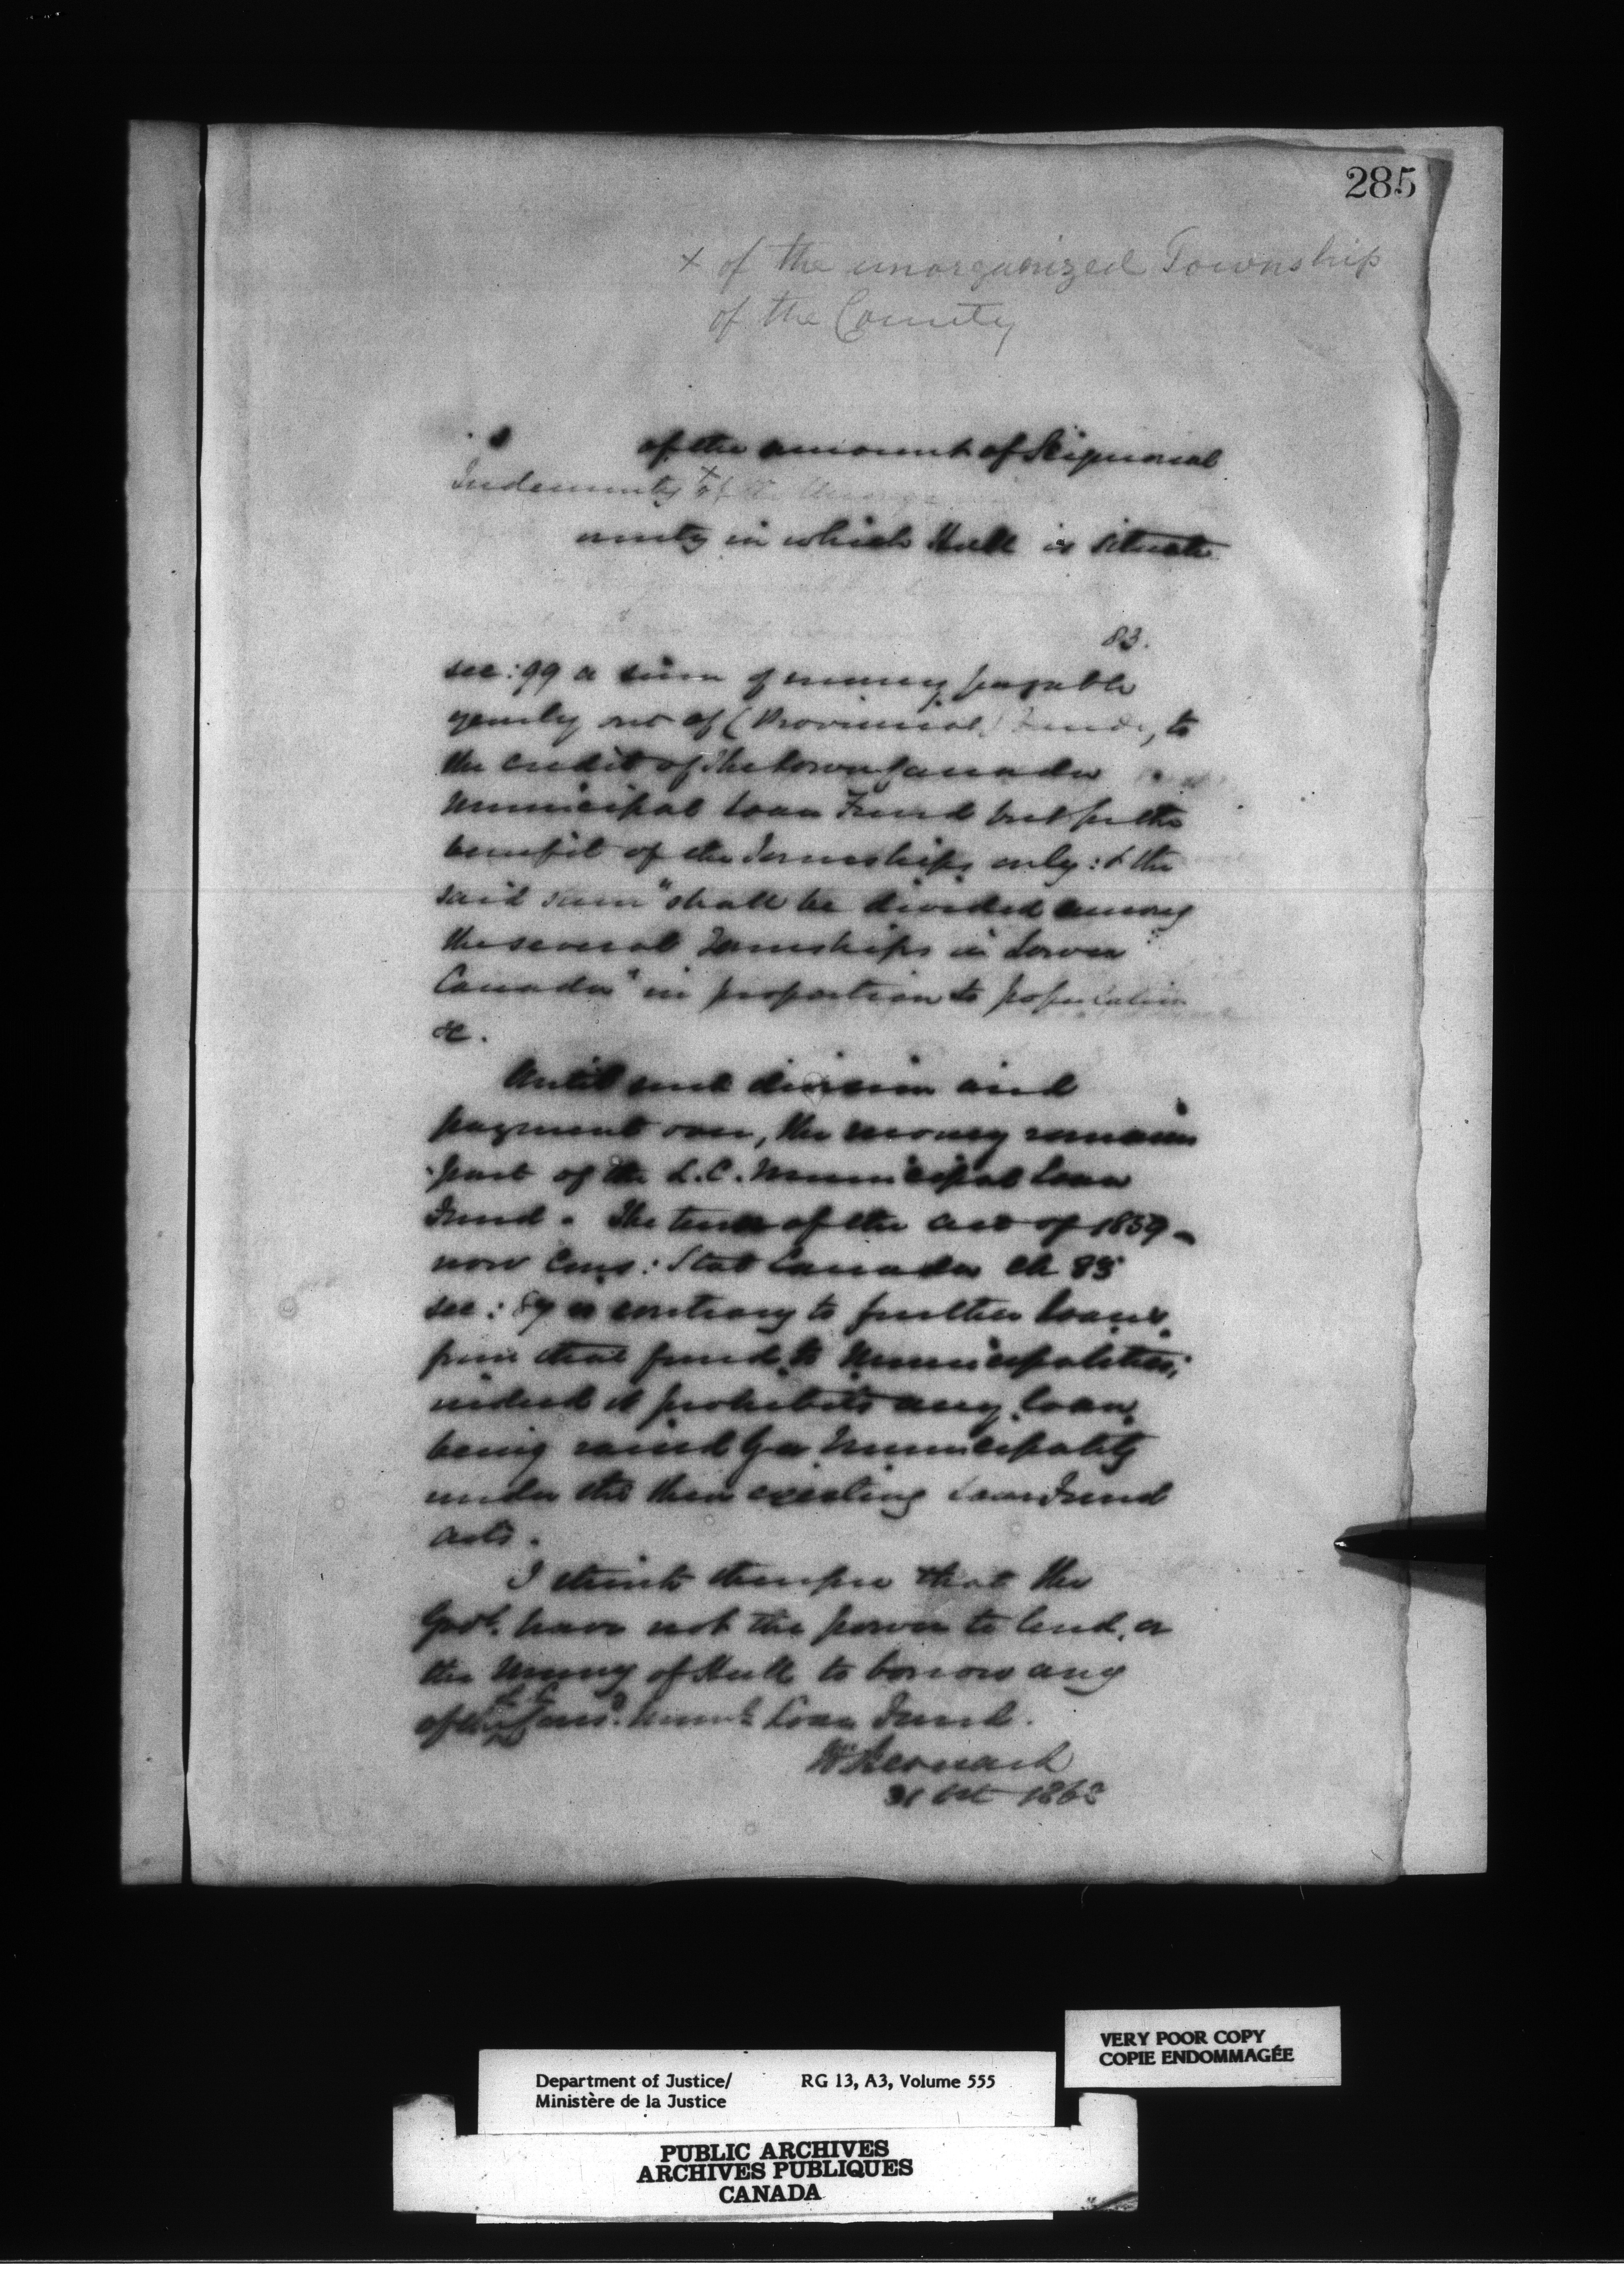 285
x of the unorganized Township
of the County
of the amount of Seignorial
Indemnity x of the
unty in which Hull is situate
83.
sec: 99 a sum of money payable
yearly out of (Provincial) Funds, to
the credit of the Lower Canada
Municipal Loan Fund but for the
benefit of the Townships only: & the
said sum "shall be divided among
the several Townships in Lower
Canada" in proportion to population
&c.
Until such division and
payment over, the money remains
part of the L.C. Municipal Loan
Fund. The tenor of the act of 1859 -
now Cons: Stat Canada ch 83
sec: 89 is contrary to further loans
from that fund to Municipalities;
indeed it prohibits any loan
being raised by a Municipality
under the then existing Loan Fund
acts.
I think therefore that the
Govt. have not the power to lend, or
the Muny of Hull to borrow any
of the L C Cons. Munl. Loan Fund.
H Bernard
31 Oct 1863
VERY POOR COPY
COPIE ENDOMMAGÉE
Department of Justice/ RG 13, A3, Volume 555
Ministère de la Justice
PUBLIC ARCHIVES
ARCHIVES PUBLIQUES
CANADA